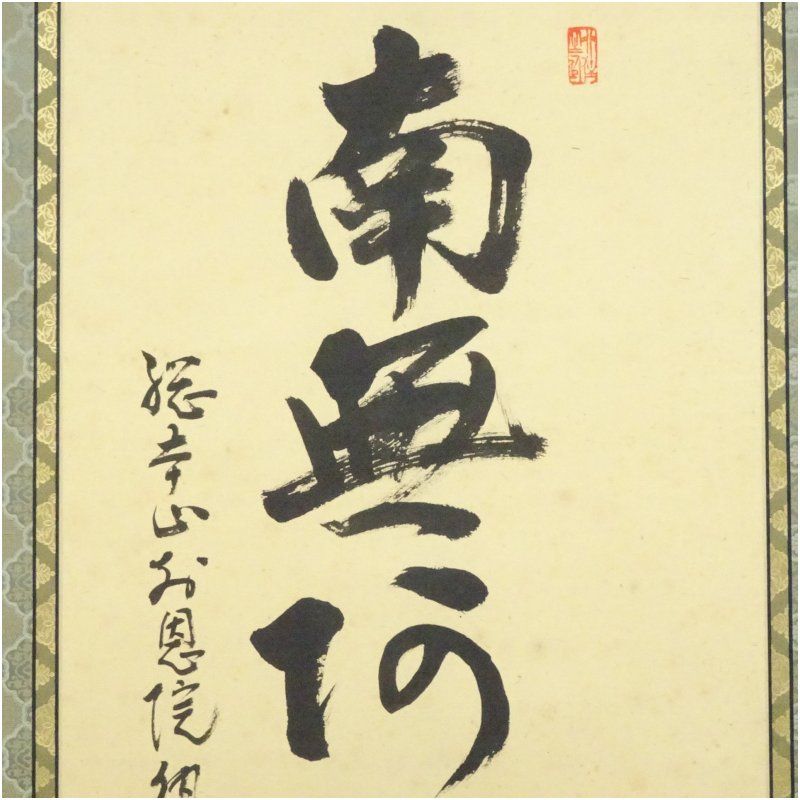 南無阿
総本山知恩院